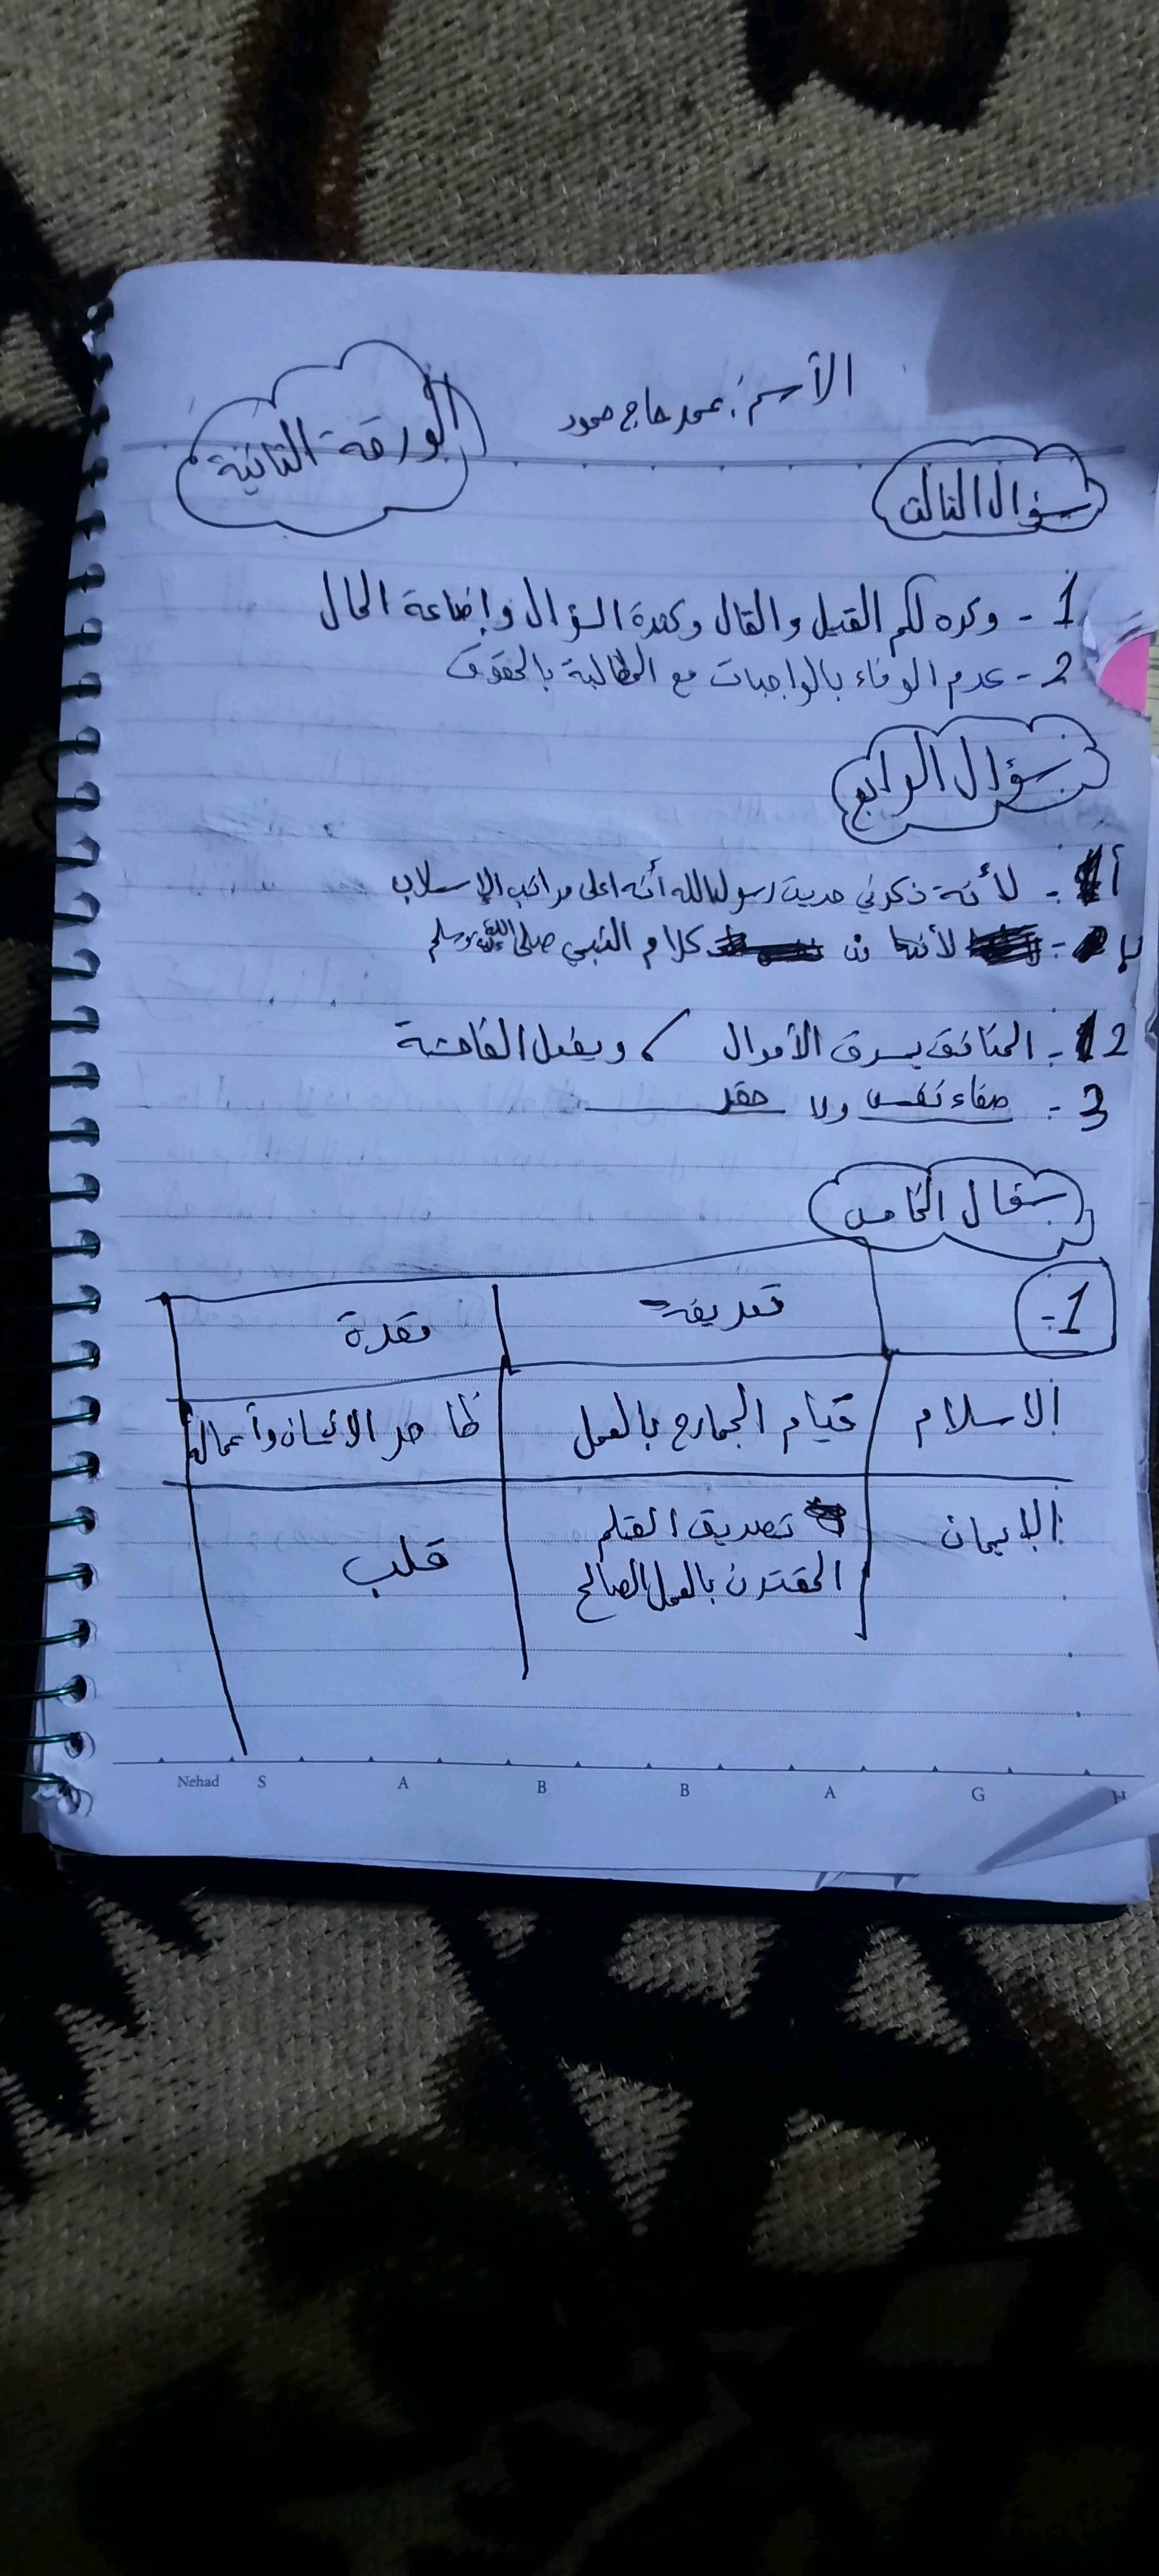 الأسم: محمد حاج حمود
الورقة الثانية
سؤال الثالث
1 - وكره لكم القيل والقال وكثرة السؤال وإضاعة المال
2 - عدم الوفاء بالواجبات مع المطالبة بالحقوق
سؤال الرابع
أ - لأنه ذكر في حديث رسول الله أنه اعلى مراتب الإسلام
ب - لأنها من كلام النبي صلى الله عليه وسلم
2 - المنافق يسرق الأموال / ويفعل الفاحشة
3 - صفاء نفس ولا حقد
سؤال الخامس
1 -
تعريفه مقرة
الاسلام قيام الجوارح بالعمل ظاهر الانسان وأعماله
الإيمان تصديق القلب قلب
المقترن بالعمل الصالح
Nehad S A B B A G H